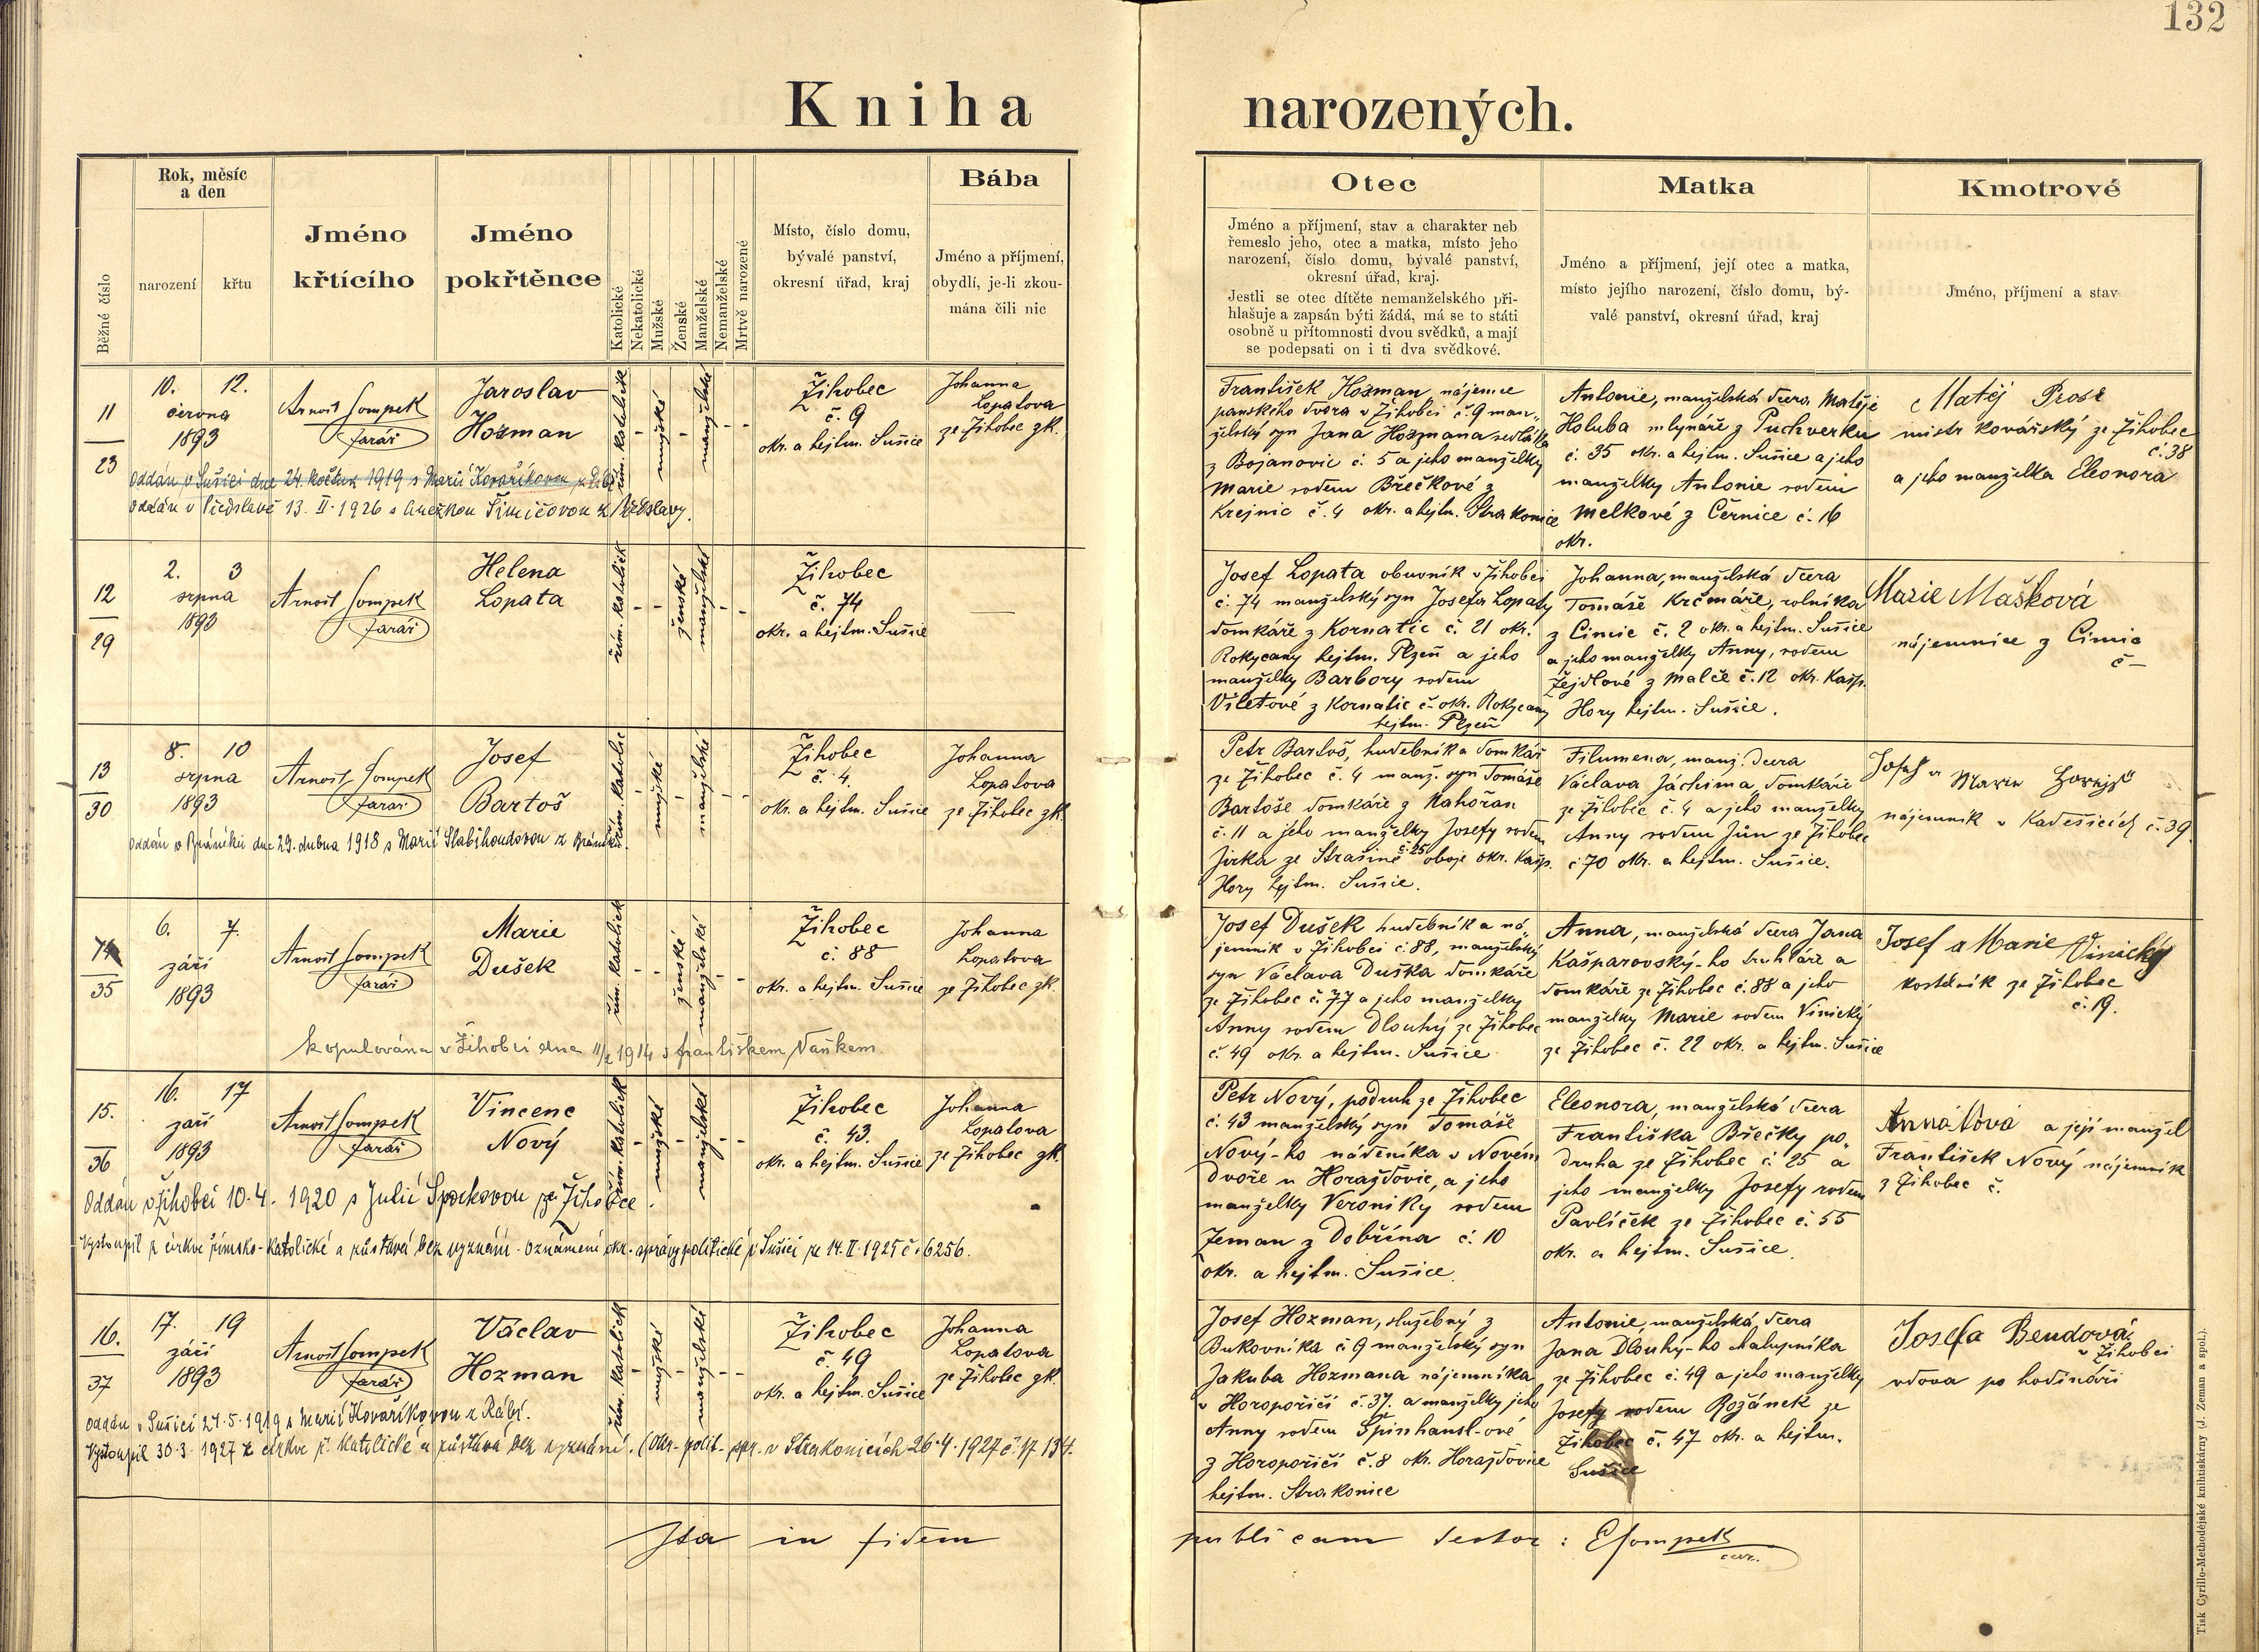 132
Kniha narozených.
Běžné číslo
Rok, měsíc
a den
narození
křtu
Jméno
křtícího
Jméno
pokřtěnce
Katolické
Nekatolické
Mužské
Ženské
Manželské
Nemanželské
Mrtvě narozené
Místo, číslo domu,
bývalé panství,
okresní úřad, kraj
Bába
Jméno a příjmení,
obydlí, je-li zkou-
mána čili nic
Otec
Jméno a příjmení, stav a charakter neb
řemeslo jeho, otec a matka, místo jeho
narození, číslo domu, bývalé panství,
okresní úřad, kraj.
Jestli se otec dítěte nemanželského při-
hlašuje a zapsán býti žádá, má se to státi
osobně u přítomnosti dvou svědků, a mají
se podepsati on i ti dva svědkové.
Matka
Jméno a příjmení, její otec a matka,
místo jejího narození, číslo domu, bý-
valé panství, okresní úřad, kraj
Kmotrové
Jméno, příjmení a stav
11
23
10. 12.
června
1893
Arnošt Sompek
farář
Jaroslav
Hozman
řím. katolík
mužské
manželské
Žihobec
č. 9
okr. a hejtm. Sušice
Johanna
Lopatova
ze Žihobec zk.
oddán v Sušici dne 24. května 1919 s Marií Kovaříkovou z Rábí
oddán v Předslavě 13. II. 1926 s Anežkou Šimičovou z Předslavy.
František Hozman, nájemce
panského dvora v Žihobci č. 9 man-
želský syn Jana Hozmana sedláka
z Bojanovic č. 5 a jeho manželky
Marie rodem Břečkové z
Krejnic č. 4 okr. a hejtm. Strakonice
Antonie, manželská dcera Matěje
Holuba mlynáře z Puchverku
č. 35 okr. a hejtm. Sušice a jeho
manželky Antonie rodem
Melkové z Černice č. 16
okr.
Matěj
mistr kovářský ze Žihobec
č. 38
a jeho manželka Eleonora
12
29
2. 3
srpna
1893
Arnošt Sompek
farář
Helena
Lopata
řím. katolík
ženské
manželské
Žihobec
č. 74
okr. a hejtm. Sušice
Josef Lopata obuvník v Žihobci
č. 74 manželský syn Josefa Lopaty
domkáře z Kornatic č. 21 okr.
Rokycany hejtm. Plzeň a jeho
manželky Barbory rodem
Viletové z Kornatic č. – okr. Rokycany
hejtm. Plzeň
Johanna, manželská dcera
Tomáše Krčmáře, rolníka
z Čimic č. 2 okr. a hejtm. Sušice
a jeho manželky Anny, rodem
Žejdlové z Malče č. 12 okr. Kašp.
Hory hejtm. Sušice.
Marie Mašková
nájemnice z Čimic
č –
13
30
8. 10
srpna
1893
Arnošt Sompek
farář
Josef
Bartoš
řím. katolic
mužské
manželské
Žihobec
č. 4.
okr. a hejtm. Sušice
Johanna
Lopatova
ze Žihobec zk.
oddán v Bráníku dne 29. dubna 1918 s Marií Slabihoudovou z Bráníku
Petr Bartoš, hudebník a domkář
ze Žihobec č. 4 manž. syn Tomáše
Bartoše domkáře z Nahořan
č. 11 a jeho manželky Josefy rodem
Jirka ze Strašíně č. 25 oboje okr. Kašp.
Hory hejtm. Sušice.
Filumena, manž. dcera
Václava Jáchima, domkáře
ze Žihobec č. 4 a jeho manželky
Anny rodem Jún ze Žihobec
č 70 okr. a hejtm. Sušice.
Josef a Marie
nájemník v Kadešicích č. 39.
14
35
6. 7.
září
1893
Arnošt Sompek
farář
Marie
Dušek
řím. katolick
ženské
manželské
Žihobec
č. 88
okr. a hejtm. Sušice
Johanna
Lopatova
ze Žihobec zk.
kopulována v Žihobci dne 11/2 1914 s Františkem Vaňkem.
Josef Dušek hudebník a ná-
jemník v Žihobci č. 88, manželský
syn Václava Duška domkáře
ze Žihobec č. 77 a jeho manželky
Anny rodem Dlouhý ze Žihobec
č 49 okr. a hejtm. Sušice
Anna, manželská dcera Jana
Kašparovský-ho truhláře a
domkáře ze Žihobec č. 88 a jeho
manželky Marie rodem Vinický
ze Žihobec č. 22 okr. a hejtm. Sušice
Josef a Marie Vinický
kostelník ze Žihobec
č. 19.
15.
36
16. 17
září
1893
Arnošt Sompek
farář
Vincenc
Nový
řím. katolick
mužské
manželské
Žihobec
č. 43.
okr. a hejtm. Sušice
Johanna
Lopatova
ze Žihobec zk.
Oddán v Žihobci 10. 4. 1920 s Julií ze Žihobce.
Vystoupil z církve římsko-katolické a zůstává bez vyznání. Oznámení okr. správy politické v Sušici ze 14. II. 1925 č. 6256.
Petr Nový, podruh ze Žihobec
č. 43 manželský syn Tomáše
Nový-ho nádeníka v Novém
Dvoře u Horažďovic, a jeho
manželky Veroniky rodem
Zeman z Dobřína č. 10
okr. a hejtm. Sušice.
Eleonora, manželská dcera
Františka Břečky po-
druha ze Žihobec č. 25 a
jeho manželky Josefy rodem
Pavlíček ze Žihobec č. 55
okr. a hejtm. Sušice.
Anna Nová a její manžel
František Nový nájemník
z Žihobec č.
16.
37
17. 19
září
1893
Arnošt Sompek
farář
Václav
Hozman
řím. katolick
mužské
manželské
Žihobec
č. 49
okr. a hejtm. Sušice
Johanna
Lopatova
ze Žihobec zk.
oddán v Sušici 24. 5. 1919 s Marií Kovaříkovou z Rábí.
Vystoupil 30. 3. 1927 z církve ř. katolické a zůstává bez vyznání. (Okr. polit. spr. v Strakonicích 26. 4. 1927 č. 17 134.
Josef Hozman, služebný z
Bukovníka č 9 manželský syn
Jakuba Hozmana nájemníka
v Horopořičí č. 37. a manželky jeho
Anny rodem Špinhansl-ové
z Horopořičí č. 8 okr. Horažďovice
hejtm. Strakonice
Antonie, manželská dcera
Jana Dlouhý-ho chalupníka
ze Žihobec č. 49 a jeho manželky
Josefy rodem Rožánek ze
Žihobec č. 47 okr. a hejtm.
Sušice
Josefa Bendová
v Žihobci
vdova po hodináři
Ita in fidem publicam testor: ESompek
cur.
Tisk Cyrillo-Methodějské knihtiskárny (J. Zeman a spol.).